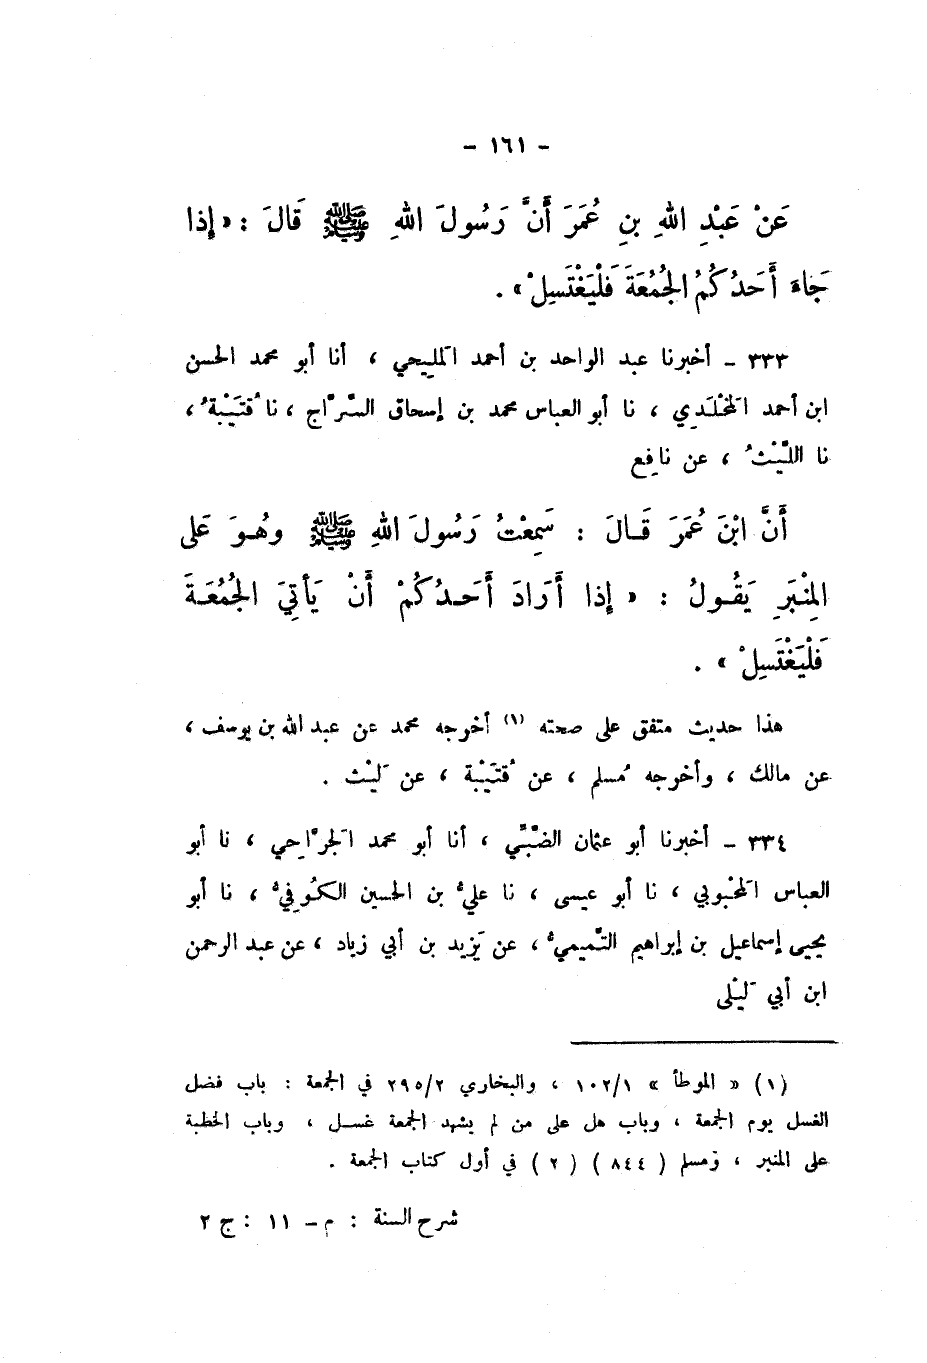 - ١٦١ -
عَنْ عَبْدِ اللهِ بنِ عُمَرَ أَنَّ رَسُولَ اللهِ ﷺ قَالَ : « إِذا
جَاءَ أَحَدُكُمُ الجُمُعَةَ فَلْيَغْتَسِلْ » .
٣٣٣ - أخبرنا عبد الواحد بن أحمد المَلِيحي ، أنا أبو محمد الحسن
ابن أحمد المَخْلَدِي ، نا أبو العباس محمد بن إسحاق السَّرَّاج ، نا قُتَيْبَةُ ،
نا اللَّيْثُ ، عن نافِع
أَنَّ ابْنَ عُمَرَ قَالَ : سَمِعْتُ رَسُولَ اللهِ ﷺ وهُوَ عَلى
المِنْبَرِ يَقُولُ : « إِذا أَرَادَ أَحَدُكُمْ أَنْ يَأْتِيَ الجُمُعَةَ
فَلْيَغْتَسِلْ » .
هذا حديث متفق على صحته (١) أخرجه محمد عن عبد الله بن يوسف ،
عن مالك ، وأخرجه مُسلم ، عن قُتَيْبة ، عن لَيْث .
٣٣٤ - أخبرنا أبو عثمان الضَّبِّي ، أنا أبو محمد الجَرَّاحِي ، نا أبو
العباس المَحْبُوبي ، نا أبو عيسى ، نا عليُّ بن الحسين الكُوفيُّ ، نا أبو
يحيى إسماعيل بن إبراهيم التَّيمِيُّ ، عن يَزِيد بن أبي زياد ، عن عبد الرحمن
ابن أبي لَيْلى
(١) « الموطأ » ١٠٢/١ ، والبخاري ٢٩٥/٢ في الجمعة : باب فضل
الغسل يوم الجمعة ، وباب هل على من لم يشهد الجمعة غسل ، وباب الخطبة
على المنبر ، ومسلم ( ٨٤٤ ) ( ٢ ) في أول كتاب الجمعة .
شرح السنة : م - ١١ : ج ٢